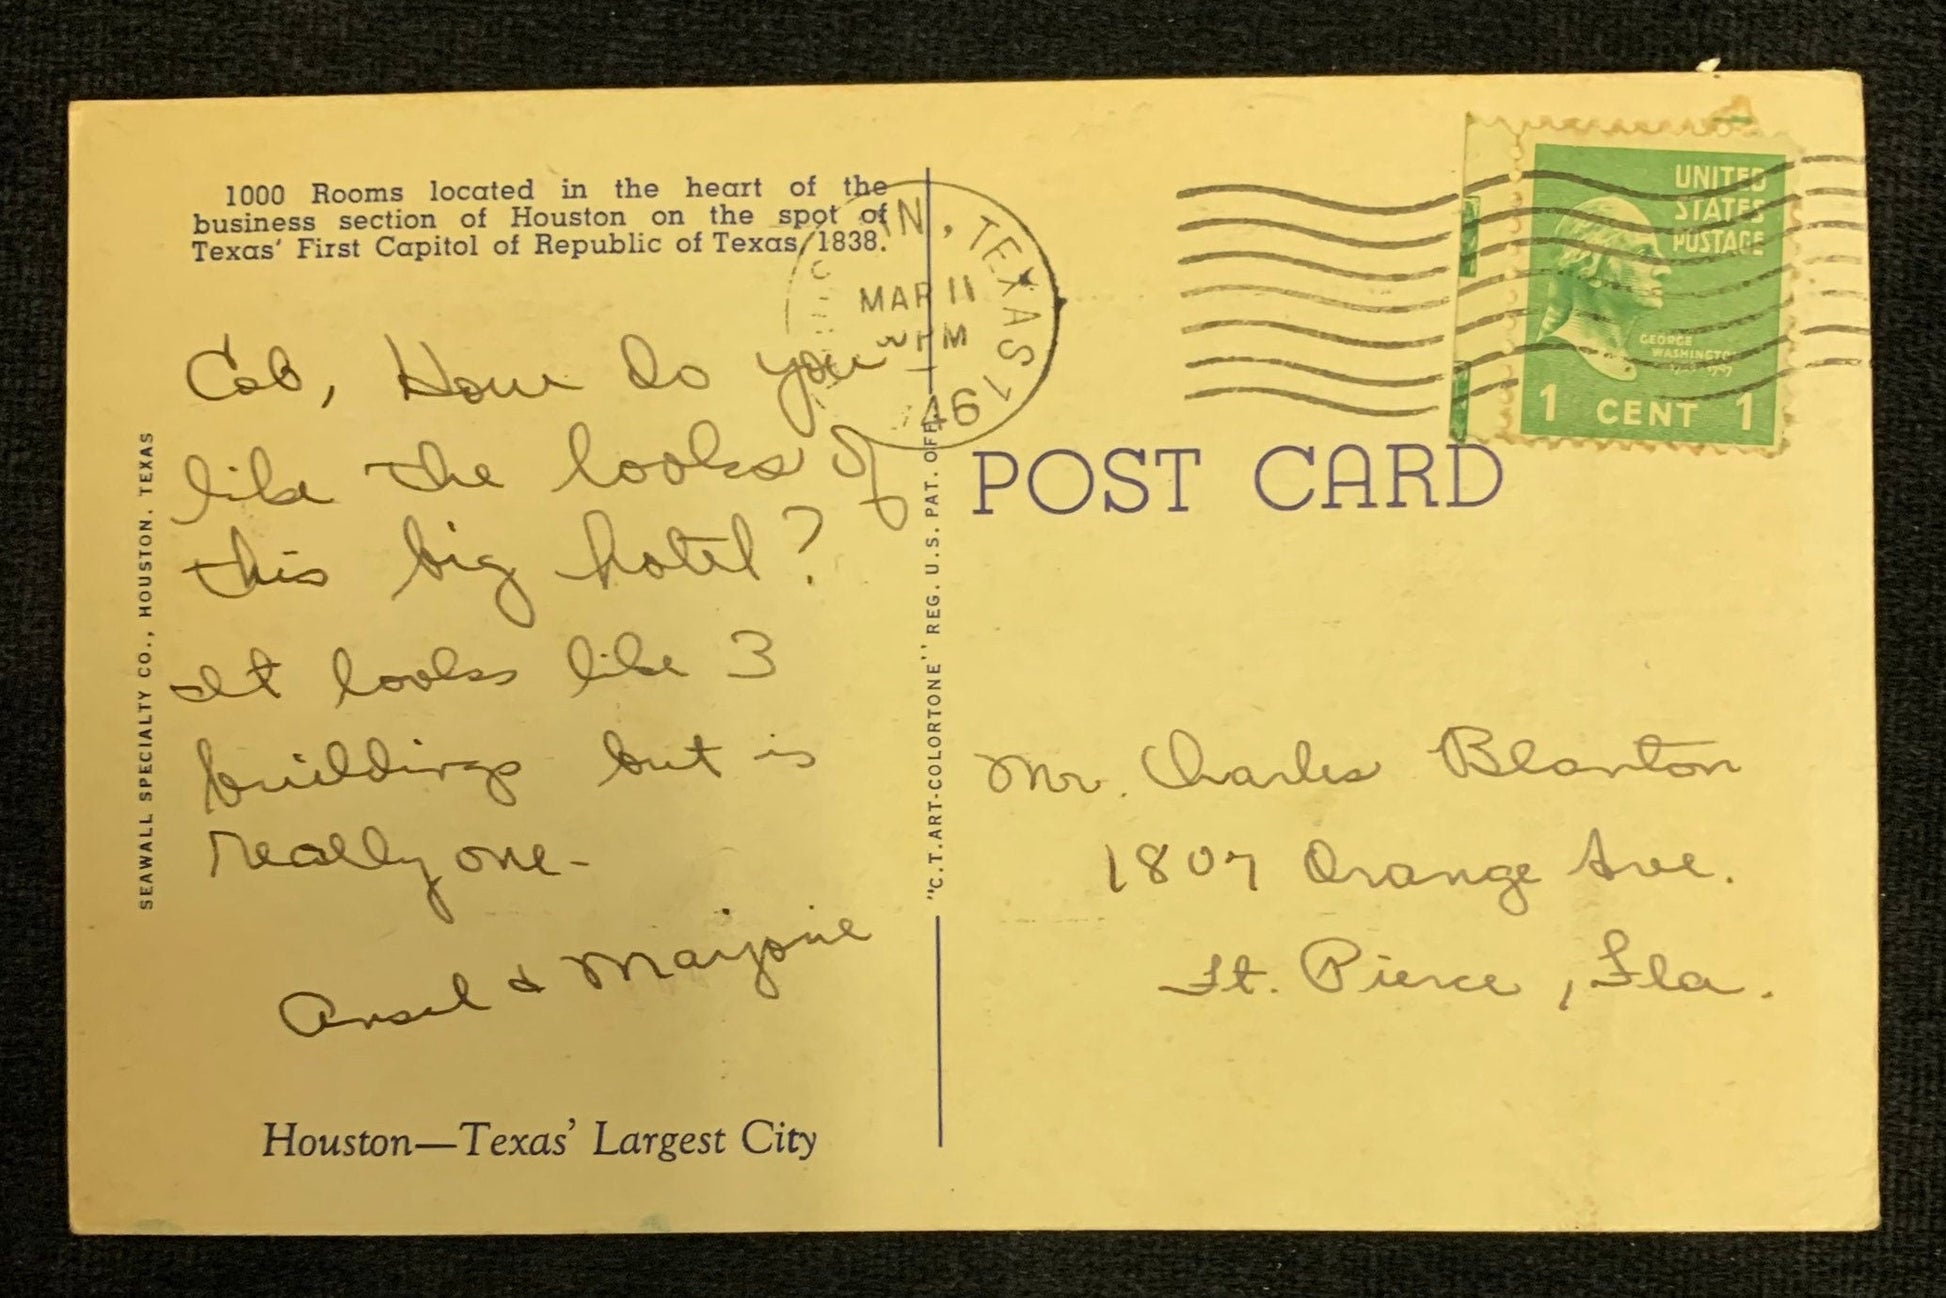 1000 Rooms located in the heart of the
business section of Houston on the spot of
Texas' First Capitol of Republic of Texas, 1838.
Cob, How do you
like the looks of
this big hotel?
It looks like 3
buildings but is
really one-
Ansel & Marjorie
Houston—Texas' Largest City
SEAWALL SPECIALTY CO., HOUSTON, TEXAS
"C. T. ART-COLORTONE" REG. U. S. PAT. OFF.
N, TEXAS 1
MAR 11
PM
46
UNITED
STATES
POSTAGE
GEORGE
WASHINGTON
1 CENT 1
POST CARD
Mr. Charles Blanton
1807 Orange Ave.
Ft. Pierce, Fla.